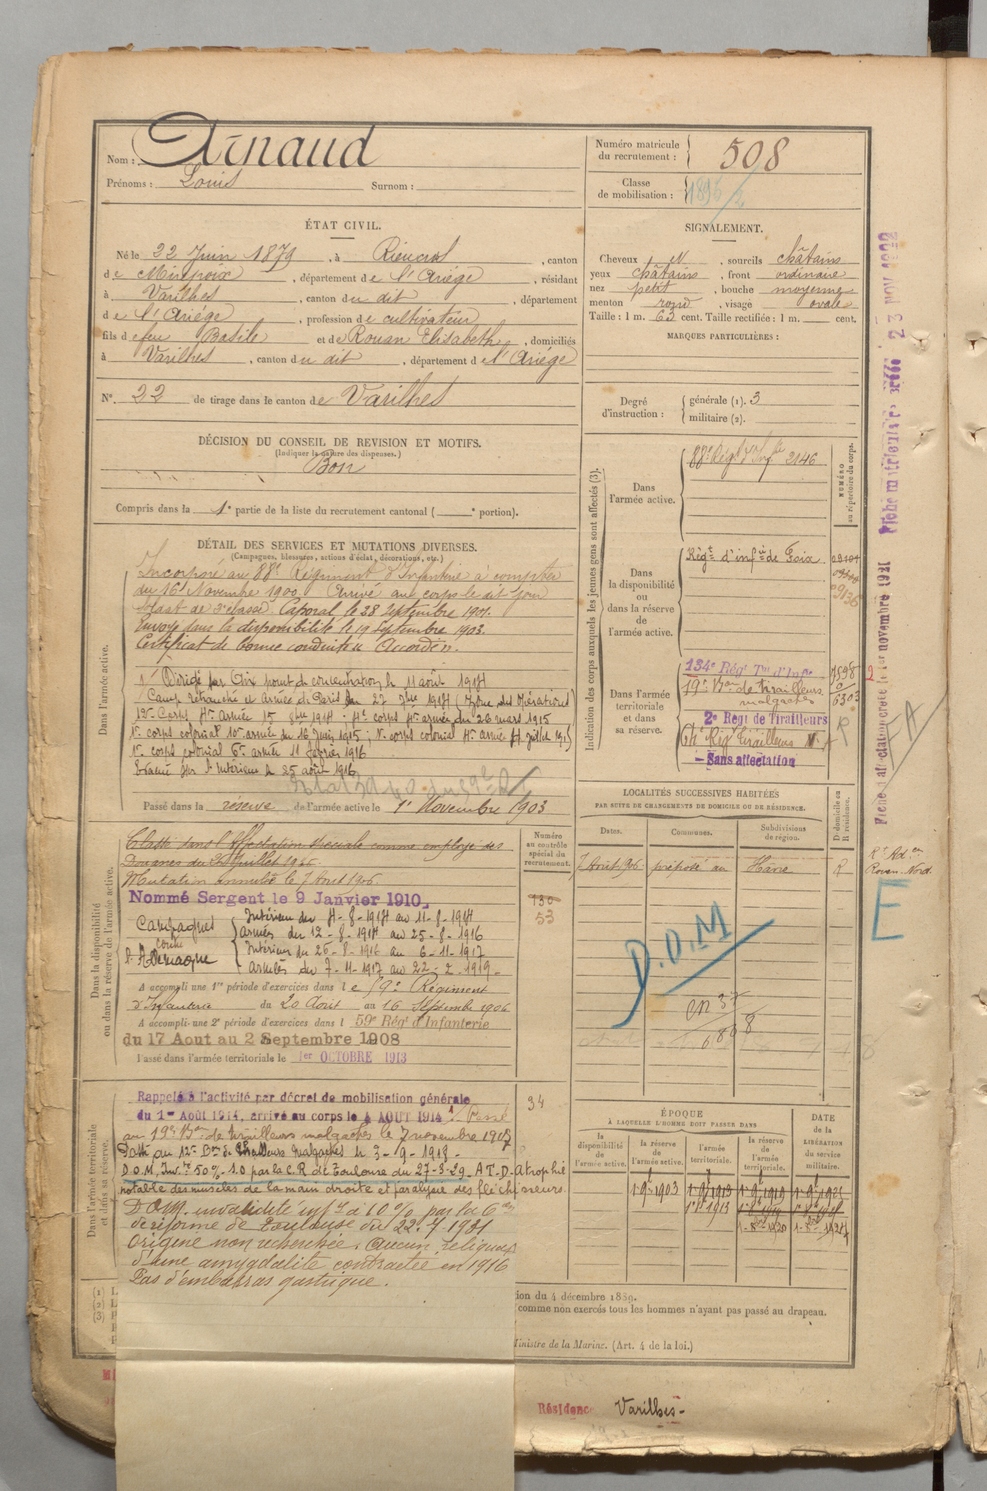 Nom : Arnaud
Prénoms : Louis Surnom :
Numéro matricule du recrutement : 508
Classe de mobilisation : 1896/2
ÉTAT CIVIL.
Né le 22 Juin 1879, à Rieucros, canton
de Mirepoix, département de l'Ariège, résidant
à Varilhes, canton du dit, département
de l'Ariège, profession de cultivateur
fils de feu Basile et de Rouan Elisabeth, domiciliés
à Varilhes, canton du dit, département de l'Ariège
N° 22 de tirage dans le canton de Varilhes
SIGNALEMENT.
Cheveux et, sourcils châtains
yeux châtains, front ordinaire
nez petit, bouche moyenne
menton rond, visage ovale
Taille : 1 m. 63 cent. Taille rectifiée : 1 m. cent.
MARQUES PARTICULIÈRES :
Degré d'instruction : générale (1). 3
militaire (2).
DÉCISION DU CONSEIL DE REVISION ET MOTIFS.
(Indiquer la nature des dispenses.)
Bon
Compris dans la 1e partie de la liste du recrutement cantonal ( e portion).
DÉTAIL DES SERVICES ET MUTATIONS DIVERSES.
(Campagnes, blessures, actions d'éclat, décorations, etc.)
Dans l'armée active.
Incorporé au 88e Régiment d'Infanterie à compter
du 16 Novembre 1900. Arrivé au corps le dit jour
Soldat de 2e classe. Caporal le 28 Septembre 1901.
Envoyé dans la disponibilité le 19 Septembre 1903.
Certificat de bonne conduite Accordé.
Dirigé par Aix point de concentration le 11 août 1914
Camp retranché et Armée de Paris du 27 7bre 1914 (Zone des Opérations)
Corps 4e armée 15 8bre 1914 : corps 4e armée du 26 mars 1915
1er corps colonial 10e armée du 16 Juin 1915 ; 1er corps colonial
1er corps colonial 6e armée 11 février 1916
Evacué sur l'Intérieur le 25 août 1916
Passé dans la réserve de l'armée active le 1er Novembre 1903
Indication des corps auxquels les jeunes gens sont affectés (3).
NUMÉRO au répertoire du corps.
Dans l'armée active.
88e Régt d'Infie 2146
Dans la disponibilité ou dans la réserve de l'armée active.
Régt d'infie de Foix
Dans l'armée territoriale et dans sa réserve.
134e Régt Tal d'Infie 7598
19e Bon de tirailleurs malgaches 6303
2e Régt de Tirailleurs
Régt Tirailleurs
- Sans affectation
LOCALITÉS SUCCESSIVES HABITÉES
PAR SUITE DE CHANGEMENTS DE DOMICILE OU DE RÉSIDENCE.
Dates. Communes. Subdivisions de région. D domicile ou R résidence.
7 Août 1906 préposé au Havre R
Rt Ad.on
Rouen-Nord.
E
D.O.M
6808
Dans la disponibilité ou dans la réserve de l'armée active.
Numéro au contrôle spécial du recrutement.
130
53
Classé dans l'Affectation spéciale comme employé des
Douanes du 26 Juillet 1906
Mutation annulée le 7 Août 1906.
Nommé Sergent le 9 Janvier 1910
Campagnes contre l'Allemagne
Intérieur du 4-8-1914 au 11-8-1914
armées du 12-8-1914 au 25-8-1916
Intérieur du 26-8-1916 au 6-11-1917
armées du 7-11-1917 au 22-2-1919
A accompli une 1re période d'exercices dans le 59e Régiment
d'Infanterie du 20 Août au 16 Septembre 1906
A accompli une 2e période d'exercices dans l 59e Régt d'Infanterie
du 17 Aout au 2 Septembre 1908
Passé dans l'armée territoriale le 1er OCTOBRE 1913
Dans l'armée territoriale et dans sa réserve.
34
Rappelé à l'activité par décret de mobilisation générale
du 1er Août 1914, arrivé au corps le 4 AOUT 1914. Passé
au 19e Bon de tirailleurs malgaches le 7 novembre 1917
Passé au 12e Bon de Tirailleurs Malgaches le 3-9-1918.
D.O.M. Inv.té 50% 1.0 par la C.R de Toulouse du 27-3-29. A.T.D. atrophie
notable des muscles de la main droite et paralysie des fléchisseurs.
D.O.M. invalidité infre à 10% par la 6e
de réforme de Toulouse du 22.7.1931
Origine non recherchée. Aucun reliquat
d'une amygdalite contractée en 1916
Pas d'embarras gastrique.
ÉPOQUE
À LAQUELLE L'HOMME DOIT PASSER DANS
la disponibilité de l'armée active. la réserve de l'armée active. l'armée territoriale. la réserve de l'armée territoriale.
DATE de la LIBÉRATION du service militaire.
ion du 4 décembre 1889.
comme non exercés tous les hommes n'ayant pas passé au drapeau.
Ministre de la Marine. (Art. 4 de la loi.)
Résidence Varilhes-
Fiche matriculaire créée 23 NOV 1922
Fiche d'affectation créée le 1er novembre 1921